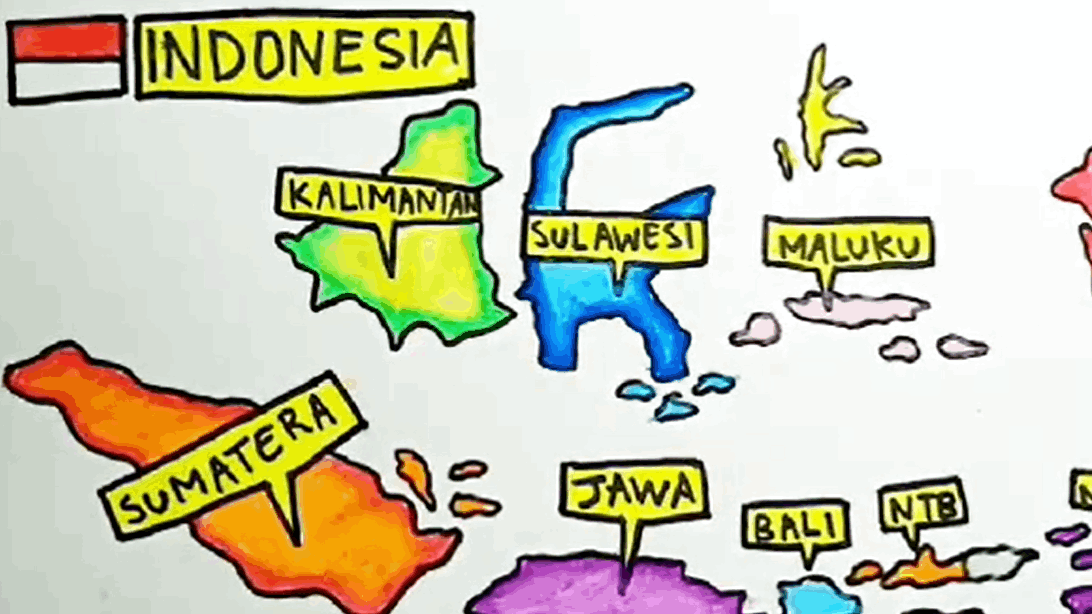 INDONESIA
KALIMANTAN
SULAWESI
MALUKU
SUMATERA
JAWA
BALI
NTB